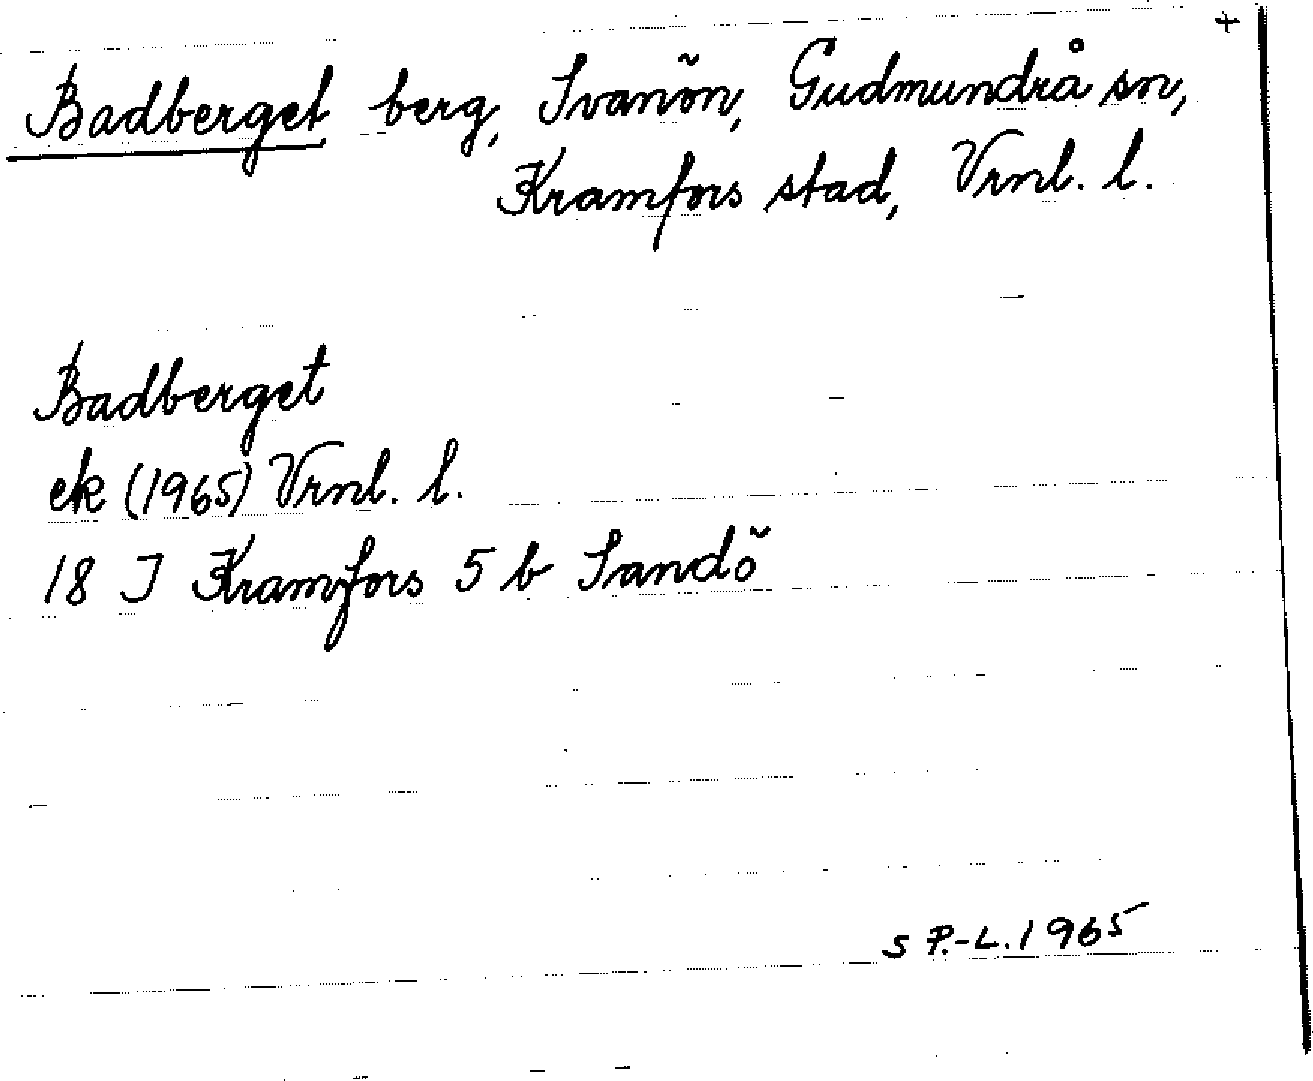 +
Badberget, berg, Svanön, Gudmundrå sn,
Kramfors stad, Vrnl. l.
Badberget
ek (1965) Vrnl. l.
18 I Kramfors 5 b Sandö
S P.-L. 1965